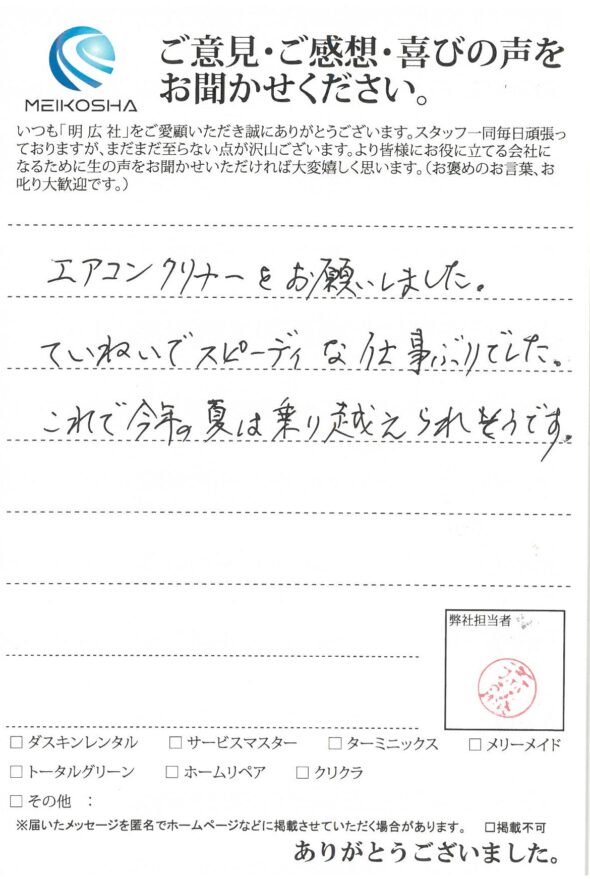 MEIKOSHA
ご意見・ご感想・喜びの声を
お聞かせください。
いつも「明広社」をご愛顧いただき誠にありがとうございます。スタッフ一同毎日頑張っ
ておりますが、まだまだ至らない点が沢山ございます。より皆様にお役に立てる会社に
なるために生の声をお聞かせいただければ大変嬉しく思います。（お褒めのお言葉、お
叱り大歓迎です。）
エアコンクリナーをお願いしました。
ていねいでスピーディな仕事ぶりでした。
これで今年の夏は乗り越えられそうです。
弊社担当者
□ ダスキンレンタル □ サービスマスター □ ターミニックス □ メリーメイド
□ トータルグリーン □ ホームリペア □ クリクラ
□ その他 ：
※届いたメッセージを匿名でホームページなどに掲載させていただく場合があります。 □掲載不可
ありがとうございました。